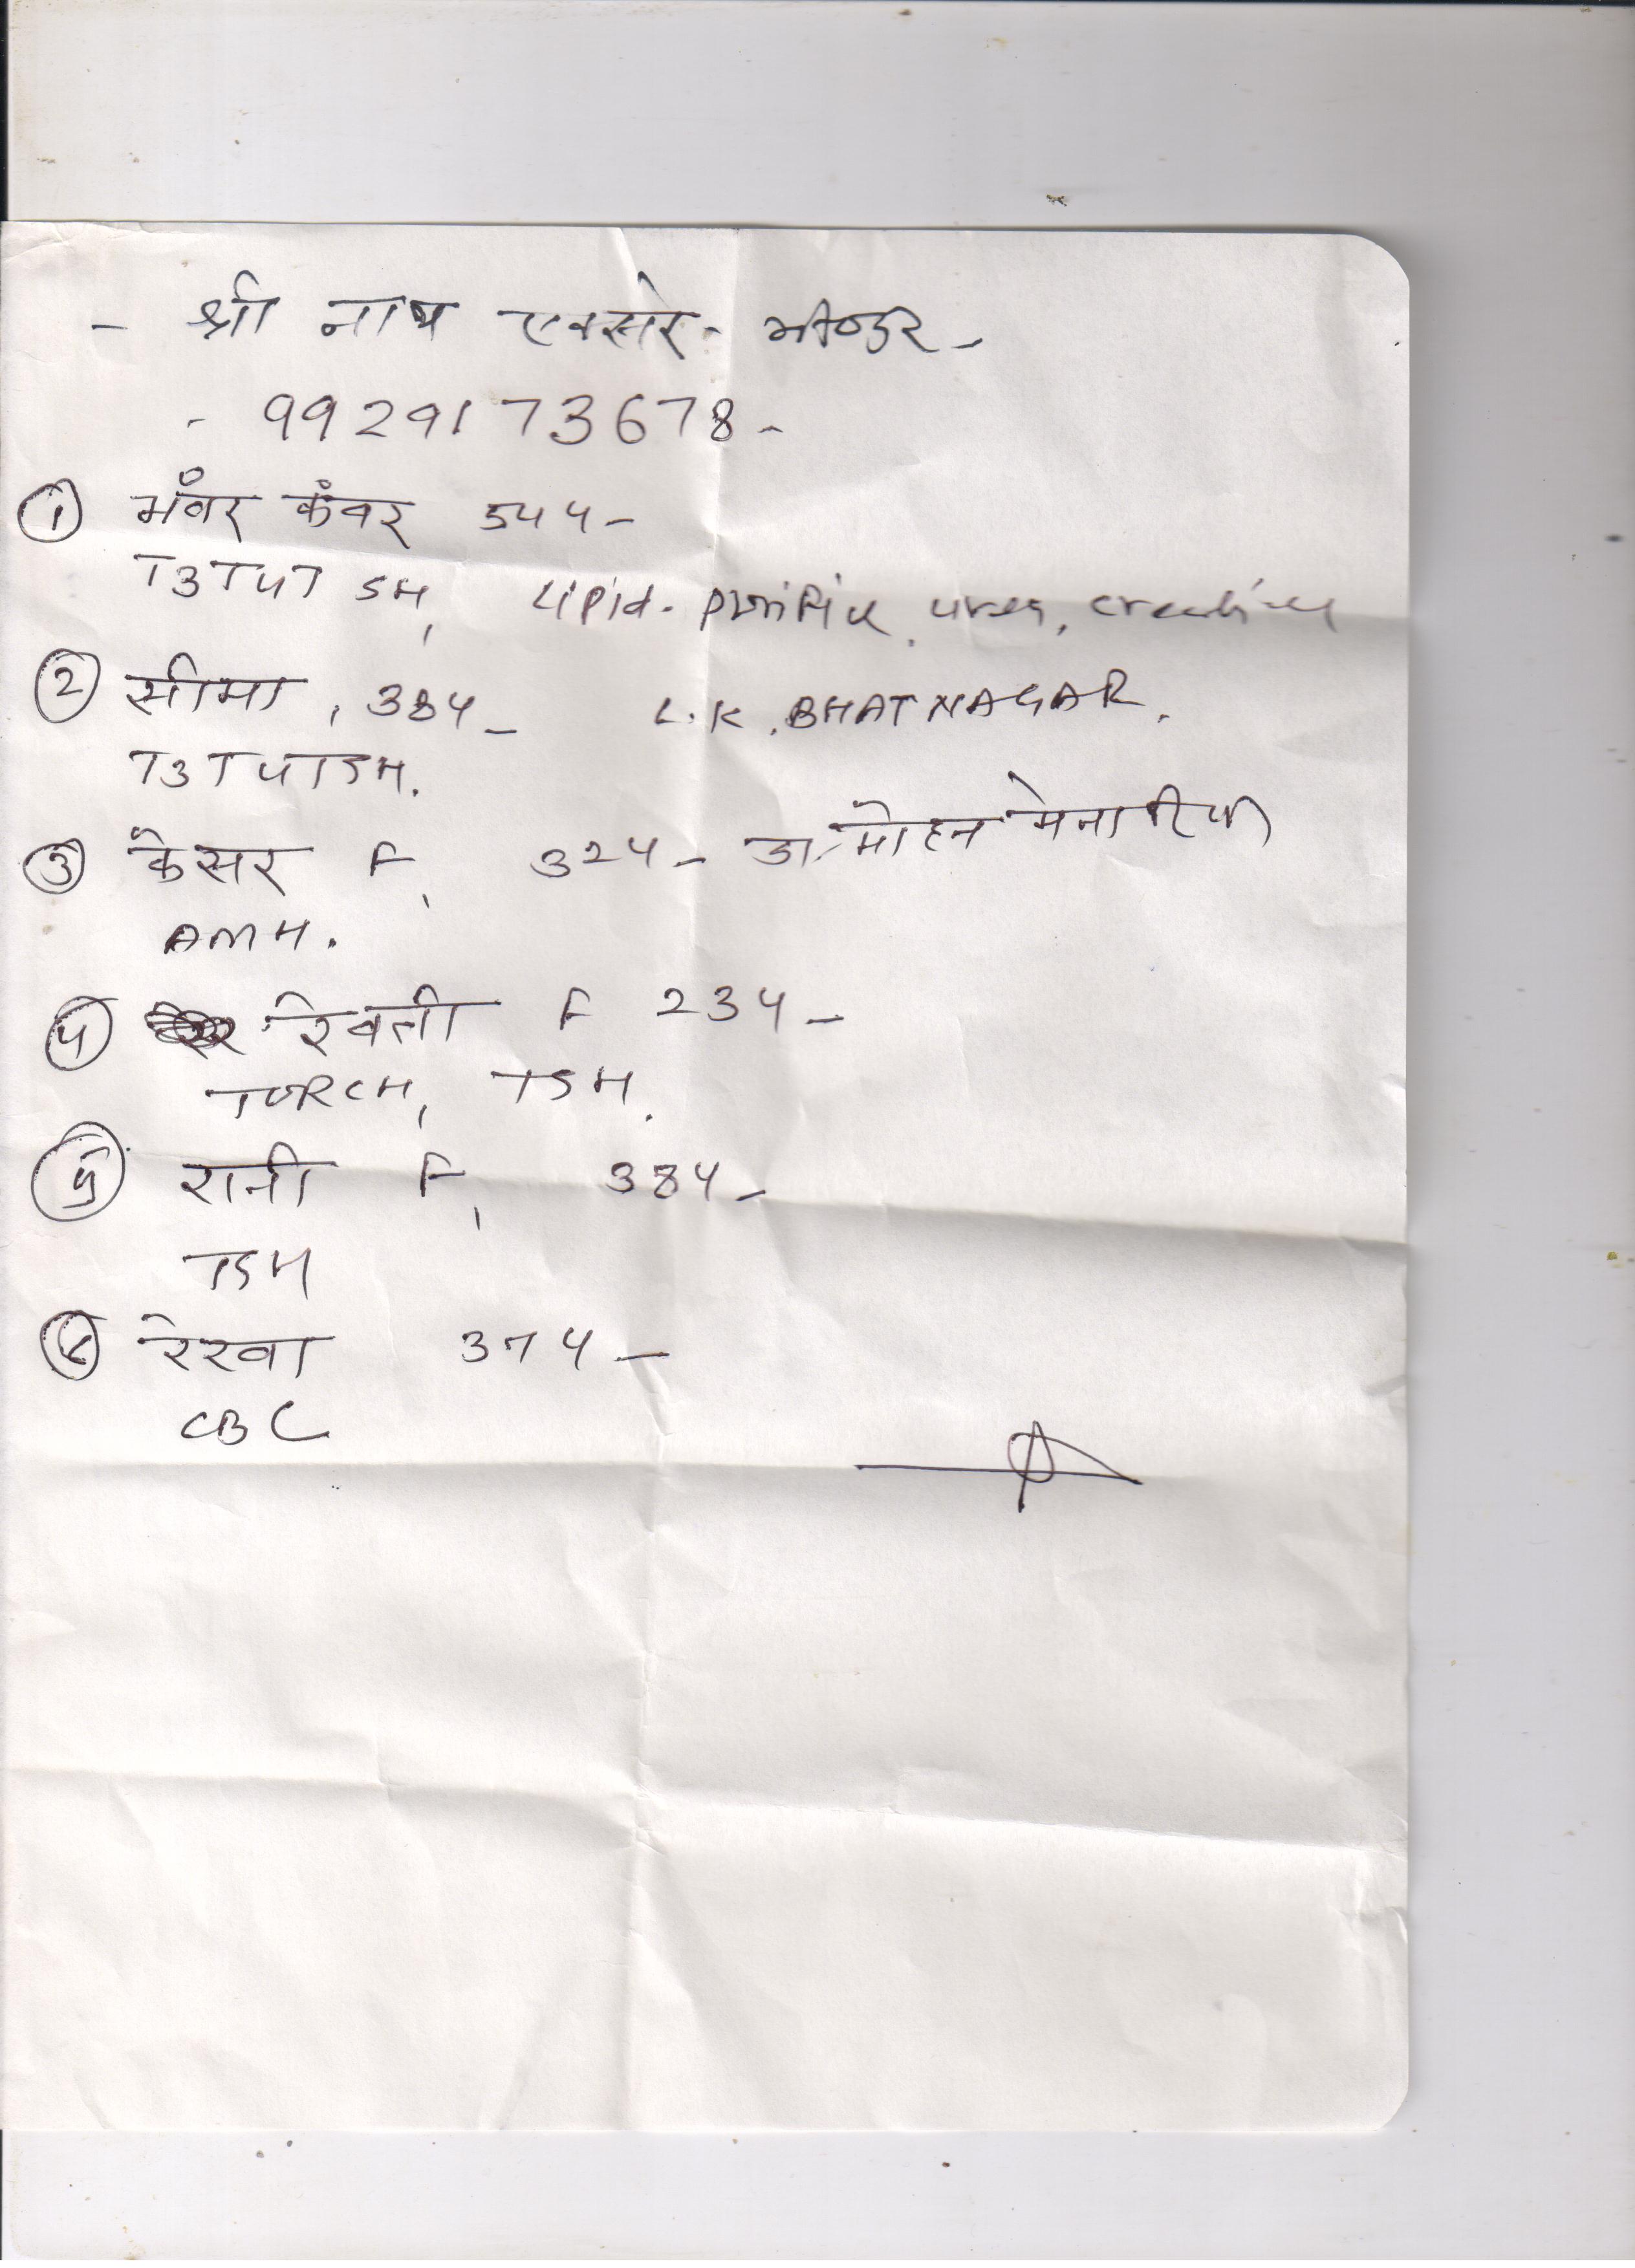 - श्री नाथ एक्सरे - भीण्डर -
- 9929173678 -
① भंवर कंवर 54y -
T3T4TSH, Lipid - profile, urea, creatine
② सीमा, 38y - L.K. BHATNAGAR.
T3T4TSH.
③ केसर F, 32y - डा. मोहन मेनारिया
AMH.
④ रेवती F 23y -
TORCH, TSH.
⑤ रानी F, 38y -
TSH
⑥ रेखा 37y -
CBC